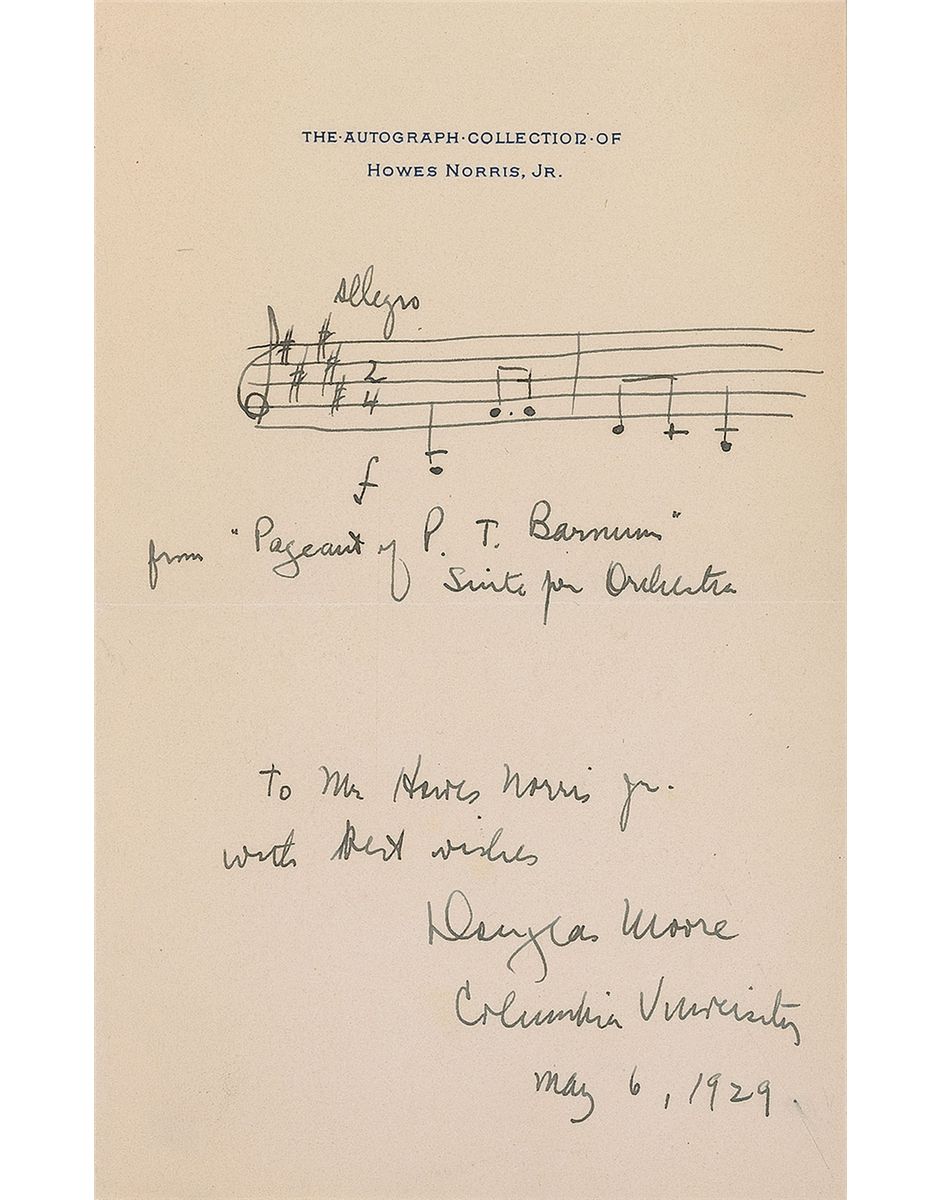 THE·AUTOGRAPH·COLLECTION·OF
HOWES NORRIS, JR.
Allegro
2
4
f
from "Pageant of P. T. Barnum"
Suite for Orchestra
To Mr Howes Norris Jr.
with best wishes
Douglas Moore
Columbia University
May 6, 1929.